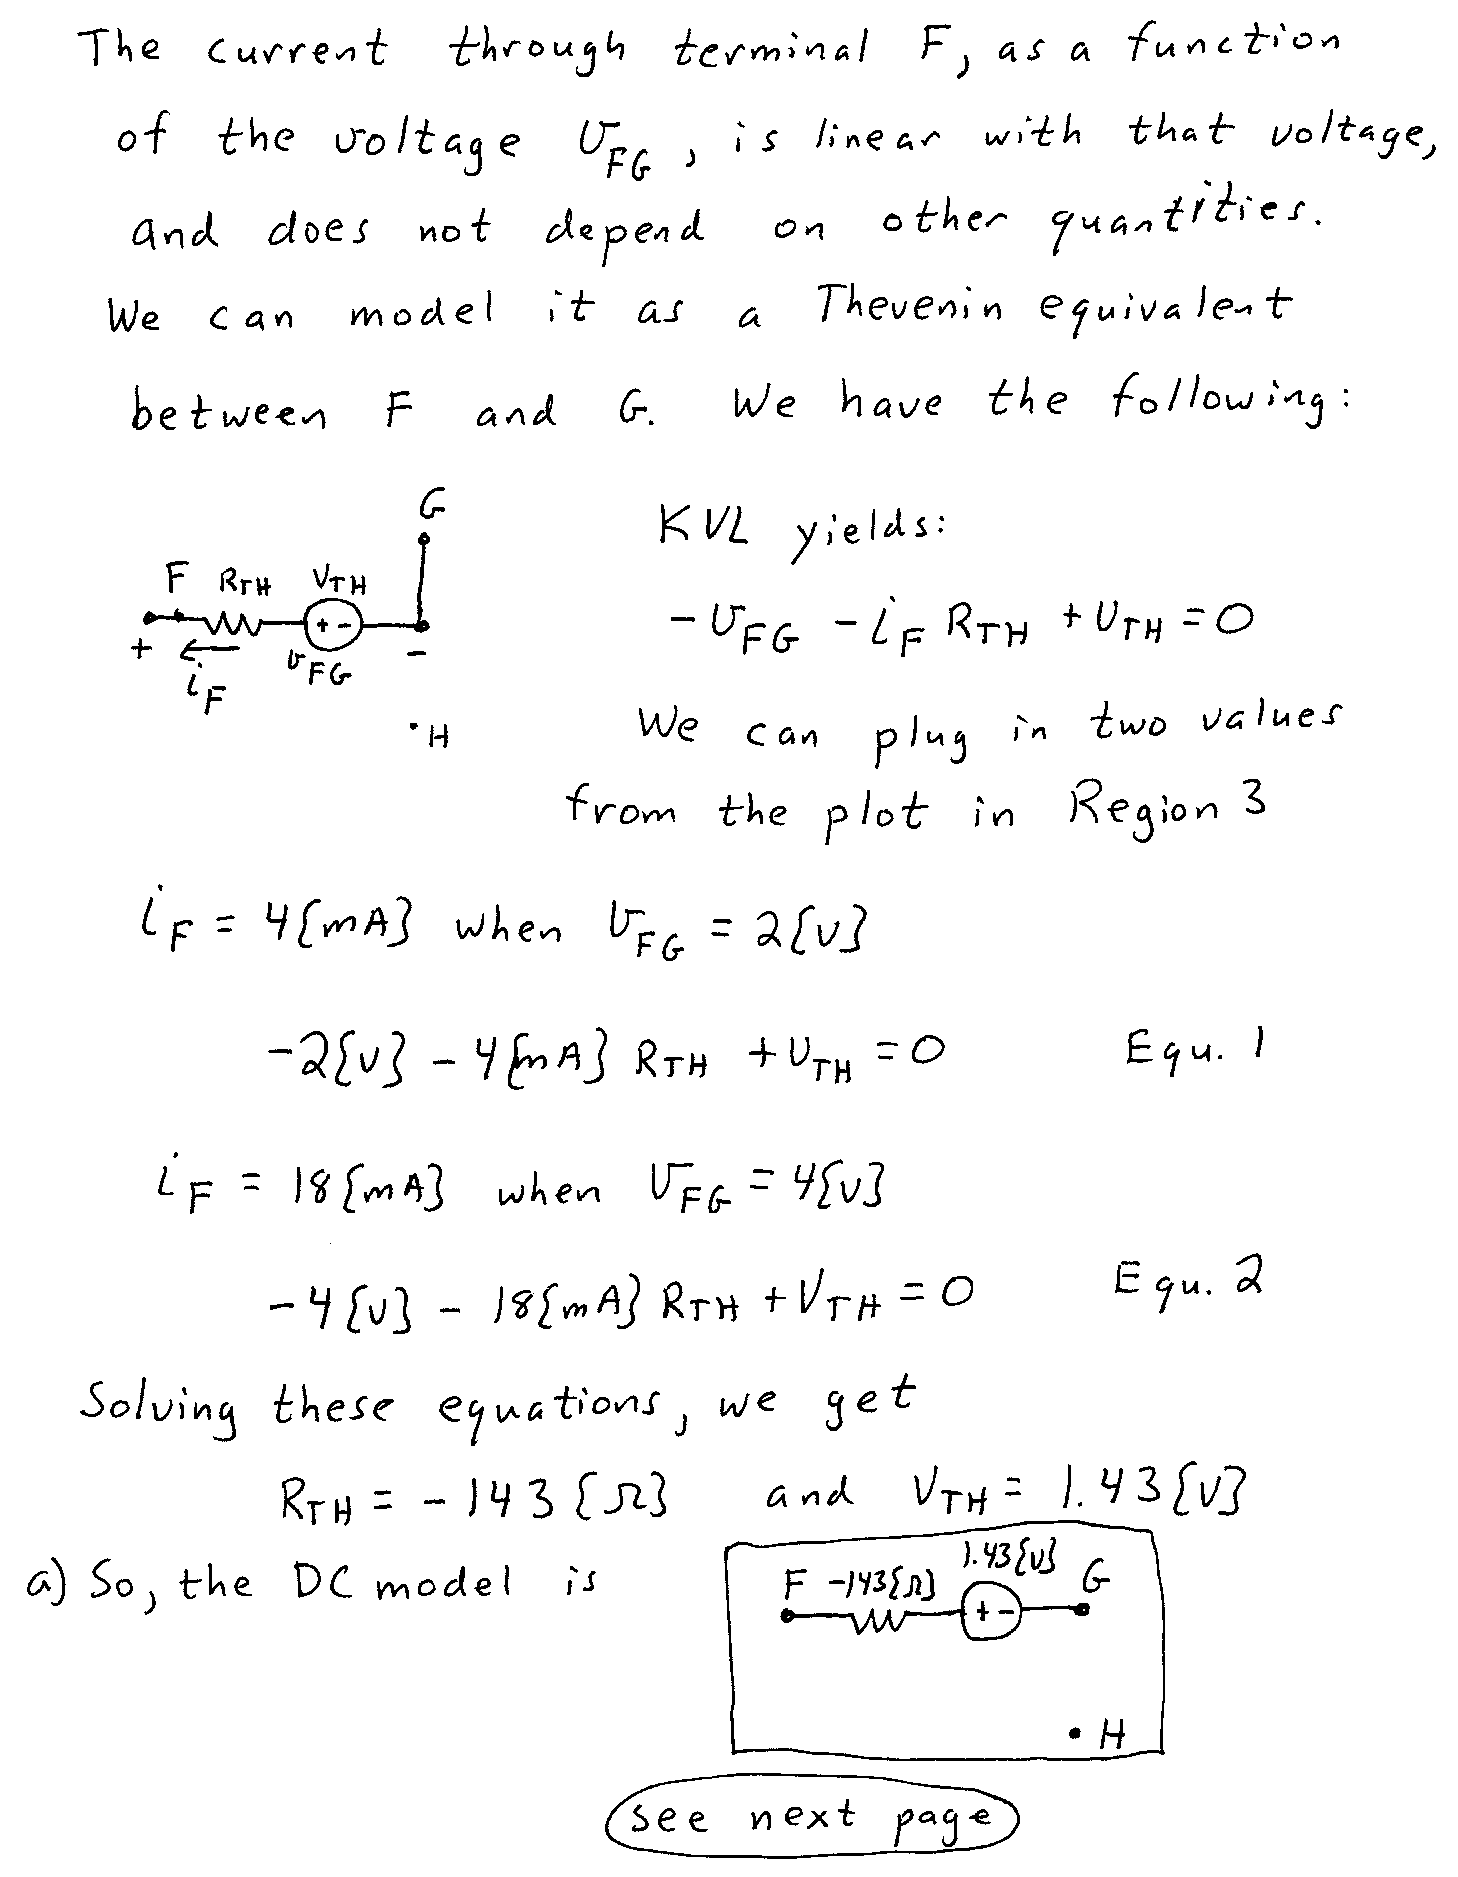 The current through terminal F, as a function
of the voltage vFG, is linear with that voltage,
and does not depend on other quantities.
We can model it as a Thevenin equivalent
between F and G. We have the following:
G
F RTH VTH
+ -
+ -
iF vFG
H
KVL yields:
-vFG - iF RTH + vTH = 0
We can plug in two values
from the plot in Region 3
iF = 4{mA} when vFG = 2{v}
-2{v} - 4{mA} RTH + vTH = 0 Equ. 1
iF = 18{mA} when vFG = 4{v}
-4{v} - 18{mA} RTH + VTH = 0 Equ. 2
Solving these equations, we get
RTH = -143{Ω} and VTH = 1.43{v}
a) So, the DC model is
F -143{Ω} 1.43{v} G
+ -
H
see next page